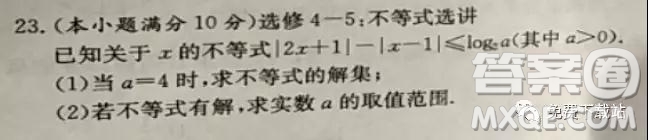 23.(本小题满分10分)选修4-5:不等式选讲
已知关于x的不等式|2x+1|-|x-1|≤log₂a(其中a>0).
(1)当a=4时,求不等式的解集;
(2)若不等式有解,求实数a的取值范围.
答案圈
MXQE.COM
免费下载站